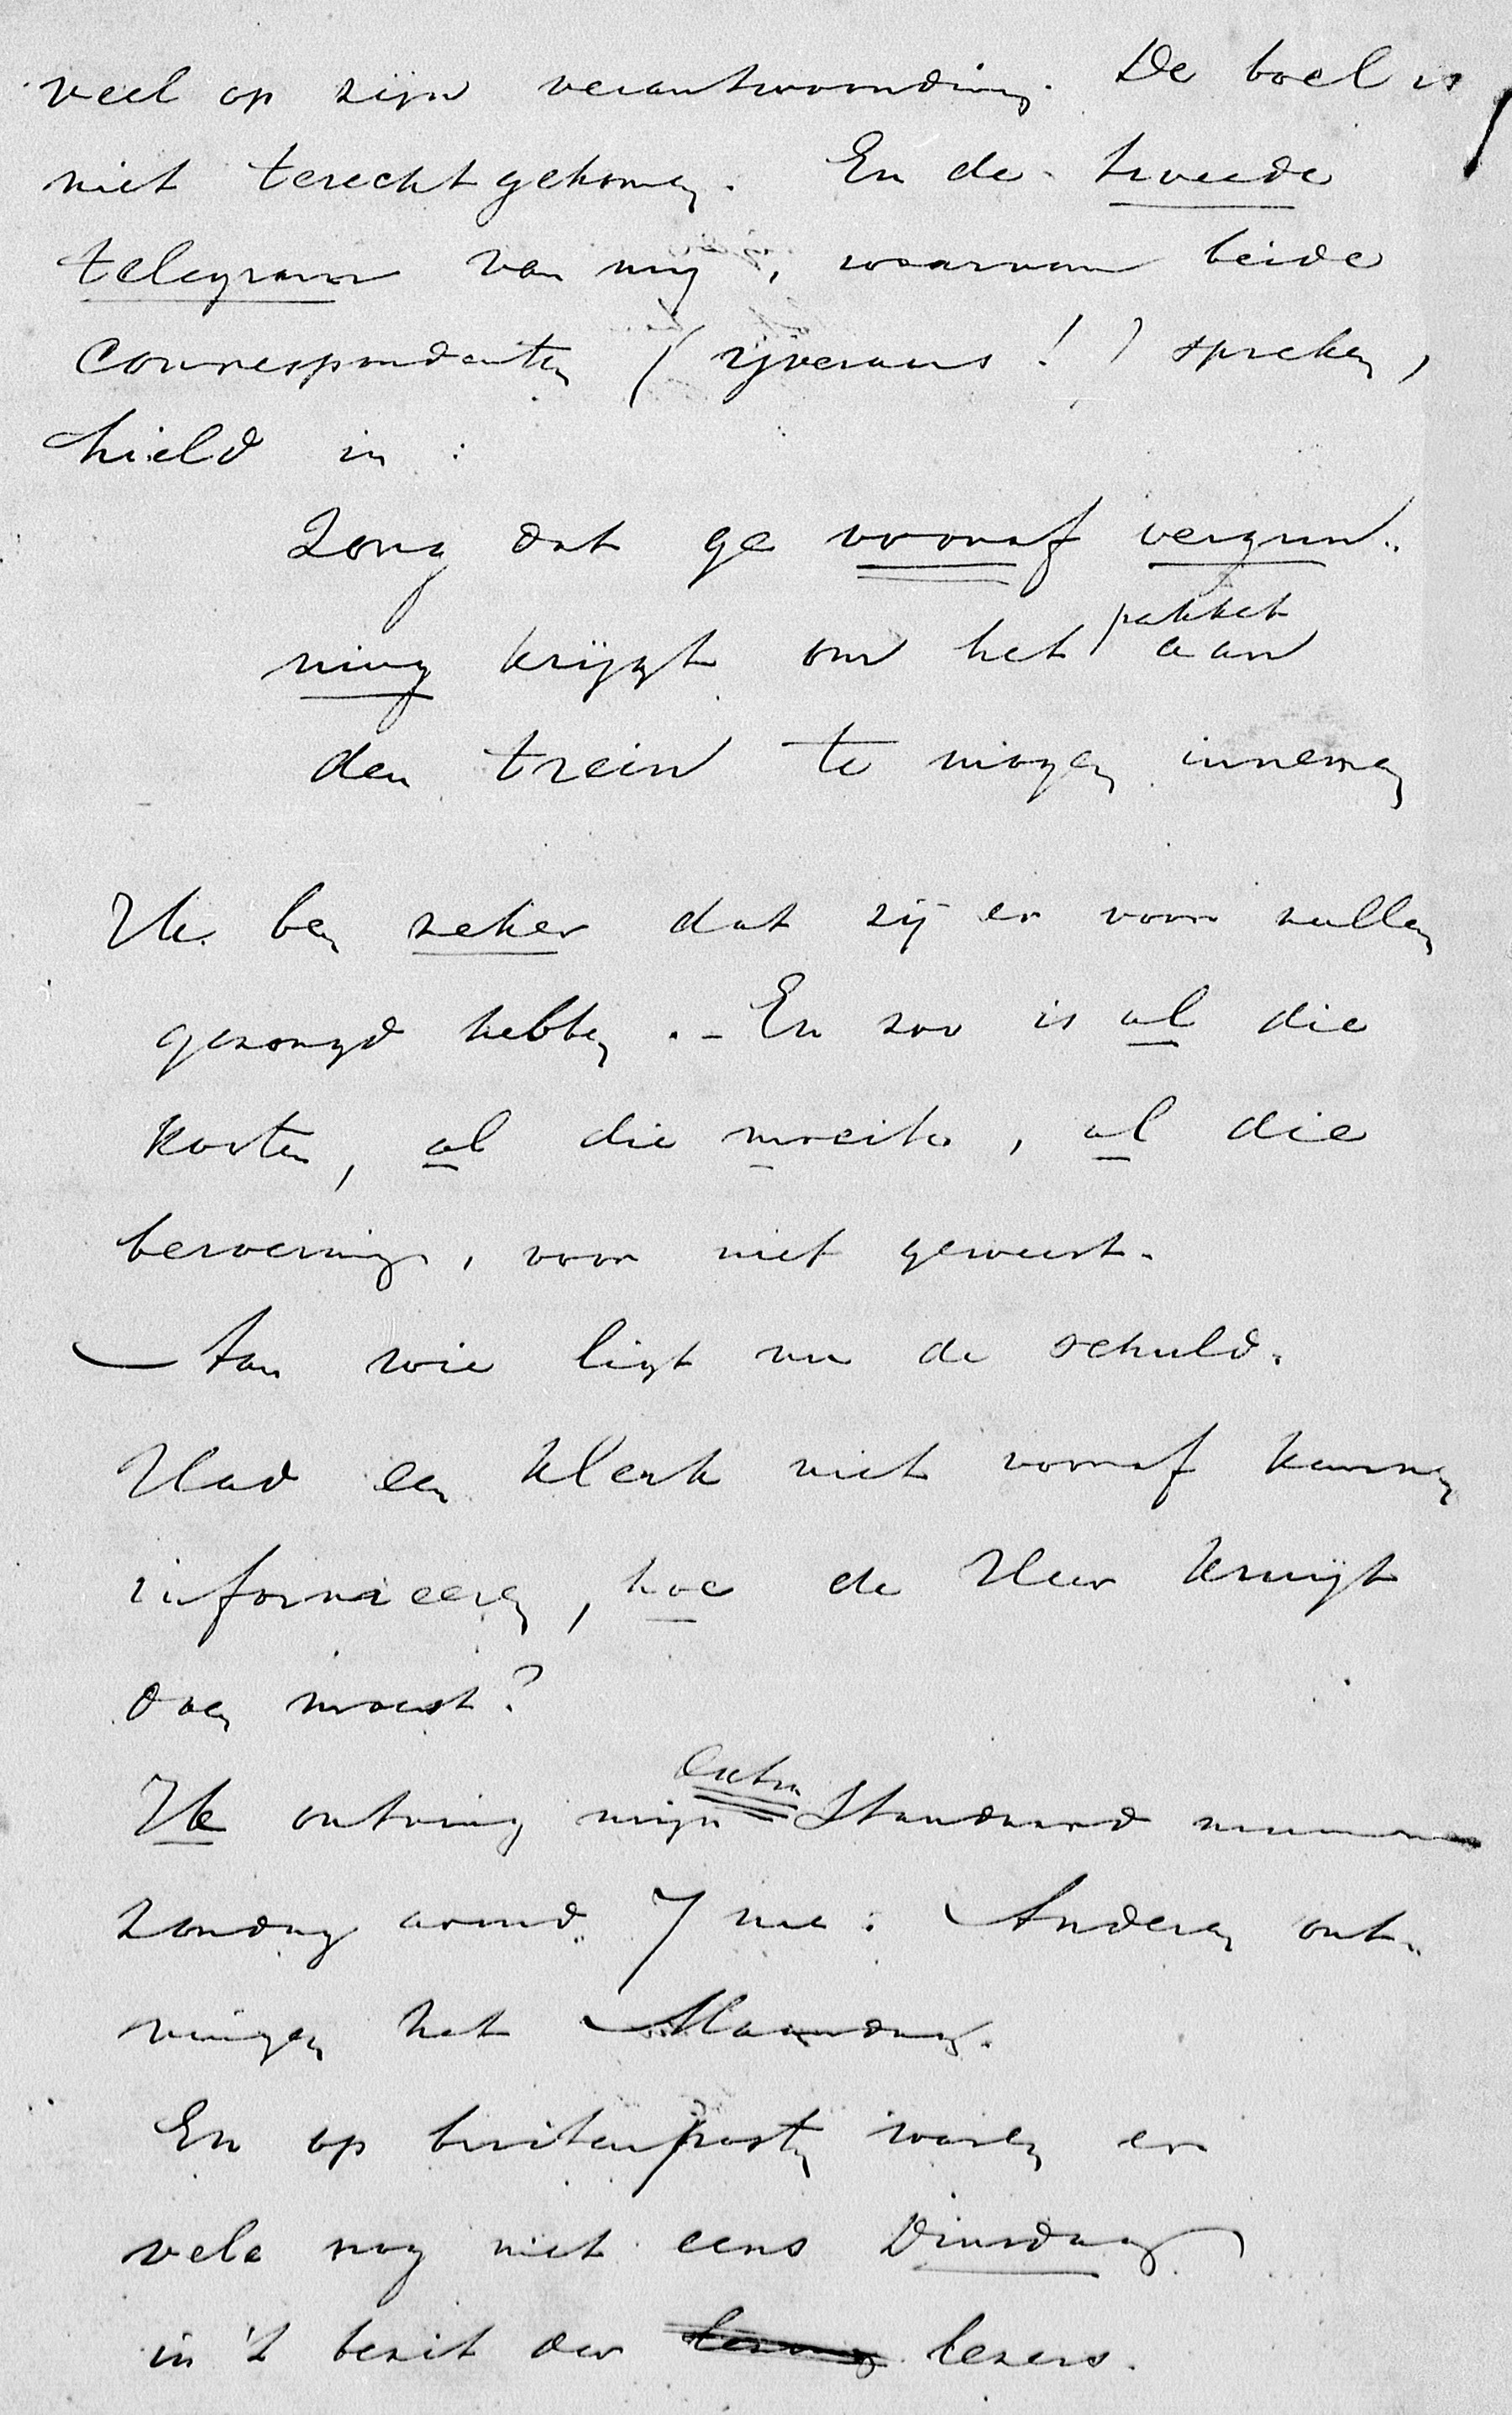 veel op zijn verantwoording. De boel is
niet terechtgekomen. En de tweede
telegram van mij, waarvan beide
correspondenten (ijveraars!) spreken,
hield in:
Zorg dat ge vooraf vergun-
ning krijgt om het pakket aan
den trein te mogen innemen
Ik ben zeker dat zij er voor zullen
gezorgd hebben. - En zoo is al die
kosten, al die moeite, al die
voor niet geweest.
Aan wie ligt nu de schuld.
Had een klerk niet vooraf kunnen
informeeren, hoe de Heer Kruijt
doen moest?
Ik ontving mijn Extra Standaard nummer
Zondag avond 7 ure: Anderen ont-
vingen het Maandag.
En op buitenposten waren er
vele nog niet eens Dinsdag
in 't bezit der lezers.